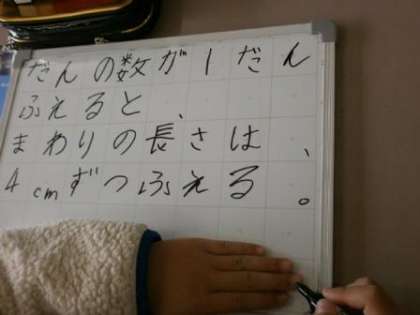 だんの数が1だん
ふえると、
まわりの長さは、
4cmずつふえる。